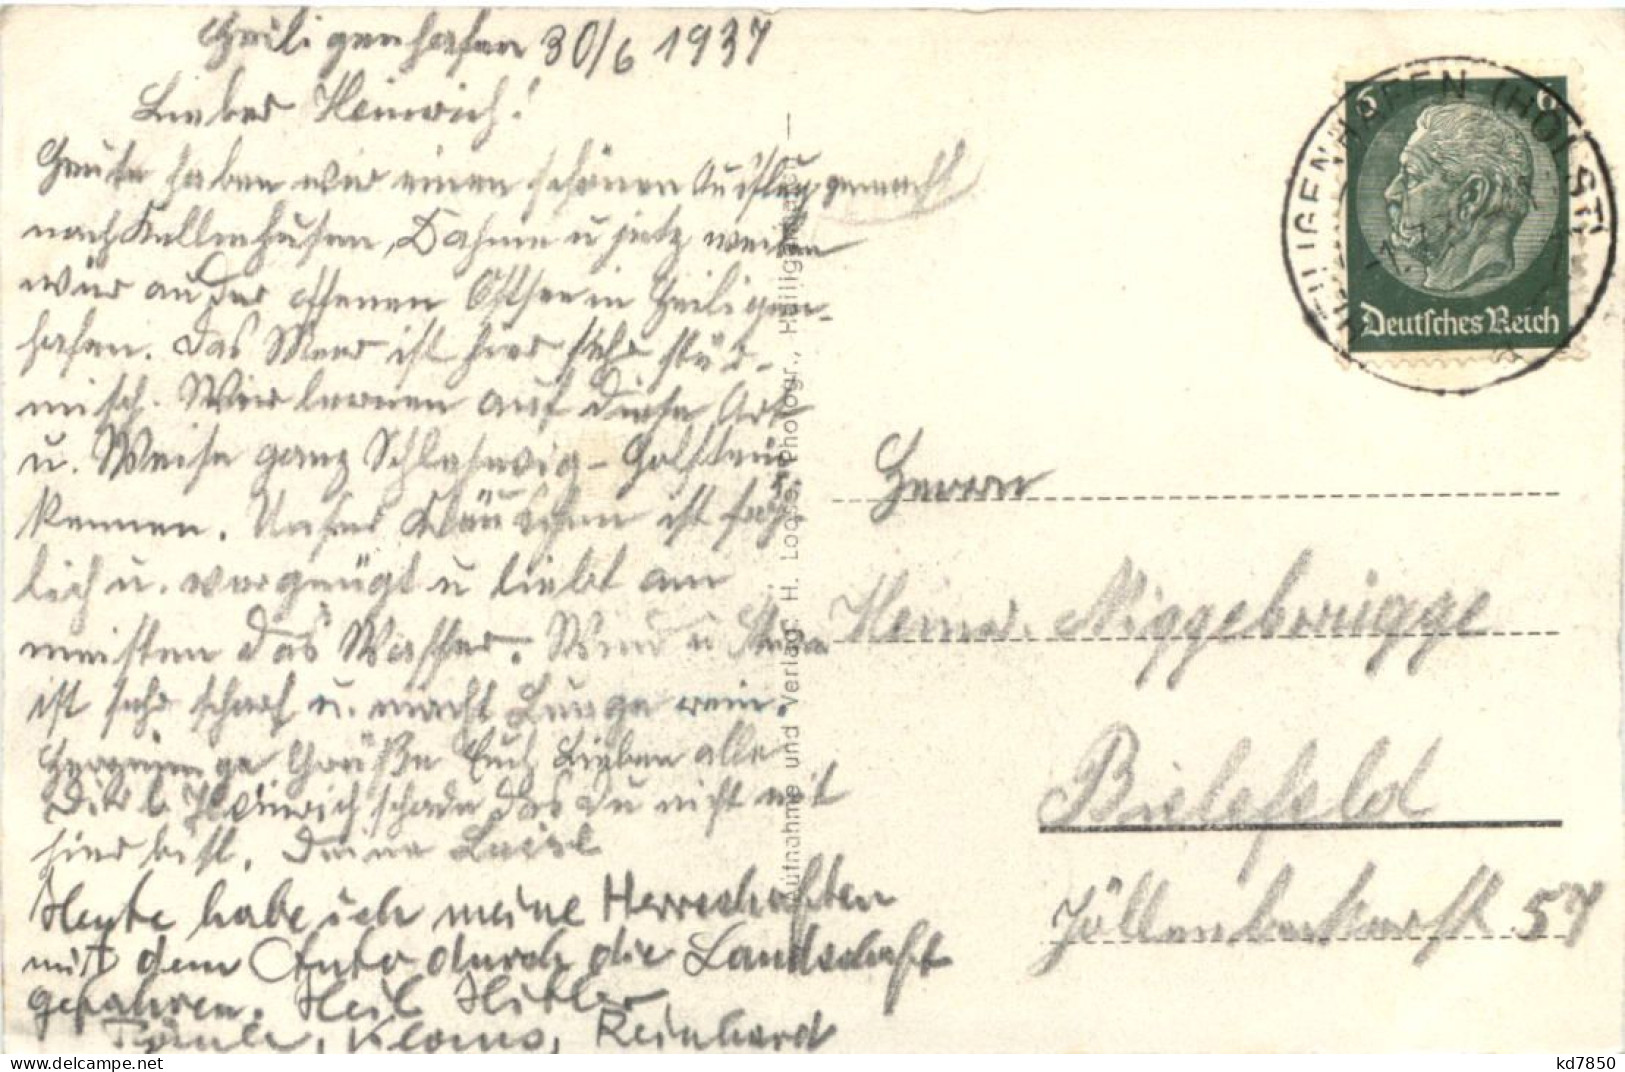 Heiligenhafen 30/6 1937
Lieber Heinrich!
Heute haben wir einen schönen Ausflug gemacht
nach Kellenhusen, Dahme u jetz weilen
wir an der offenen Ostsee in Heiligen-
hafen. Das Meer ist hier sehr stür-
misch. Wir lernen auf diese Art
u. Weise ganz Schleswig-Holstein
kennen. Unser Kläuschen ist fröh-
lich u. vergnügt u liebt am
meisten das Wasser. Wind u
ist sehr scharf u. macht Lunge rein.
Grüße Euch Lieben alle
Dir l. Heinrich schade das du nicht mit
hier bist. Deine Luise
Heute habe ich meine Herrschaften
mit dem Auto durch die Landschaft
gefahren. Heil Hitler
Klaus, Reinhard
Aufnahme und Verlag: H. Loose, Photogr., Heiligenhafen
HEILIGENHAFEN (HOLST)
6 6
Deutsches Reich
Herrn
Heinr. Niggebrügge
Bielefeld
Jöllenbeckerstr 57
kd7850